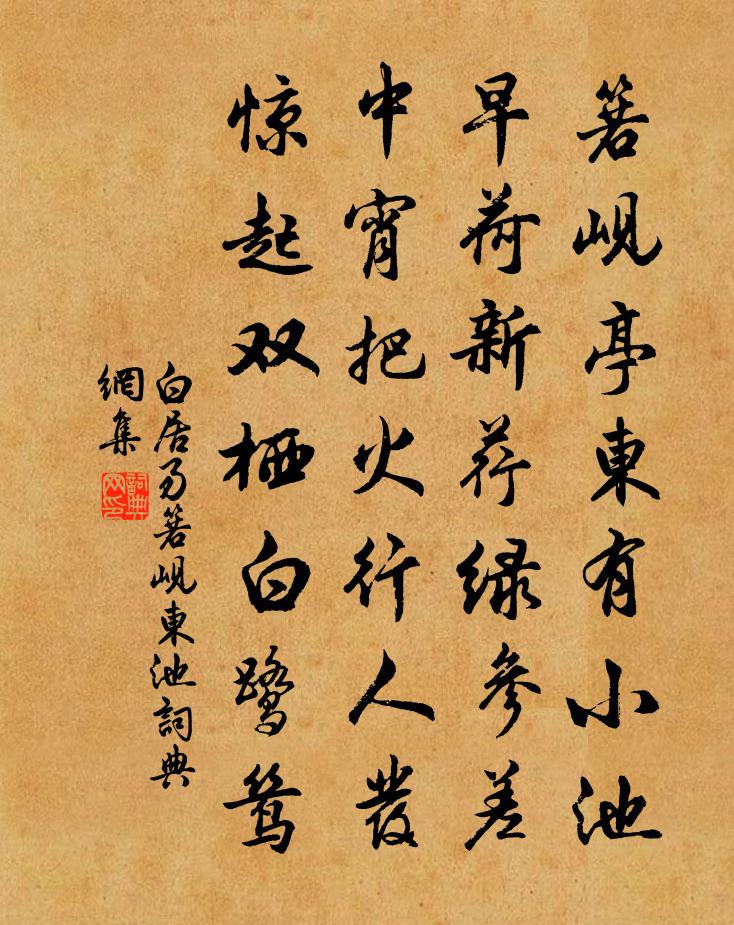 箬峴亭東有小池
早荷新荇绿參差
中宵把火行人發
惊起双栖白鹭鸶
白居易箬峴東池詞典
網集
詞典
网印